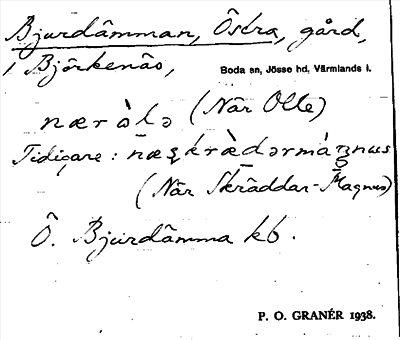 Bjurdämman, Östra, gård,
i Björkenäs,
Boda sn, Jösse hd, Värmlands l.
nær òlə (När Olle)
Tidigare: næʂkrædərmáŋnus
(När Skräddar-Magnus)
Ö. Bjurdämma kb.
P. O. GRANÉR 1938.